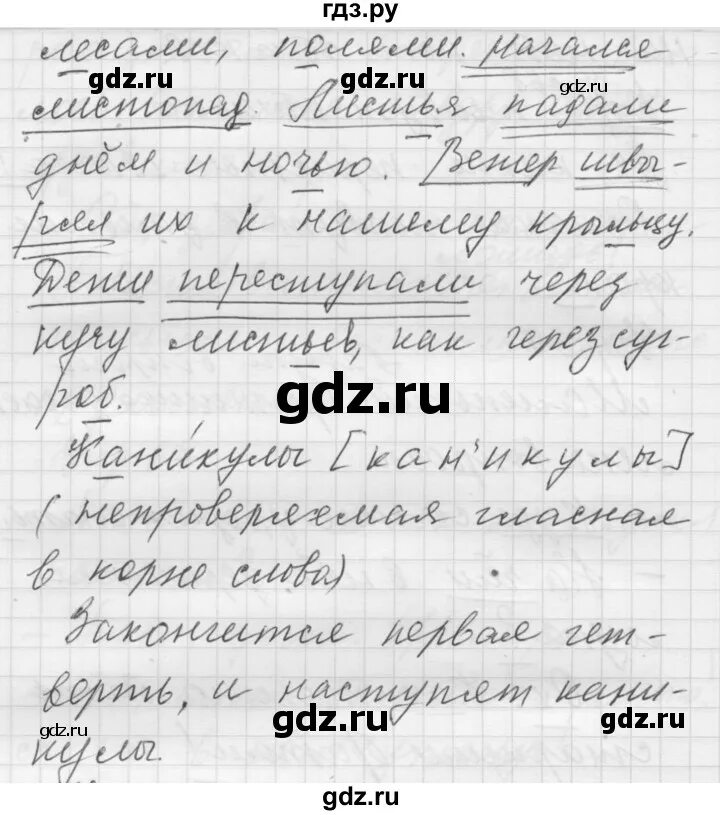 гдз.ру
лесами, полями. Начался
листопад. Листья падали
днём и ночью. Ветер швы-
рял их к нашему крыльцу.
Дети переступали через
кучу листьев, как через суг-
роб.
Кани́кулы [кан'икулы]
(непроверяемая гласная
в корне слова)
Закончится первая чет-
верть, и наступят кани-
кулы.
gdz.ru
gdz.ru
gdz.ru
gdz.ru
gdz.ru
gdz.ru
gdz.ru
gdz.ru